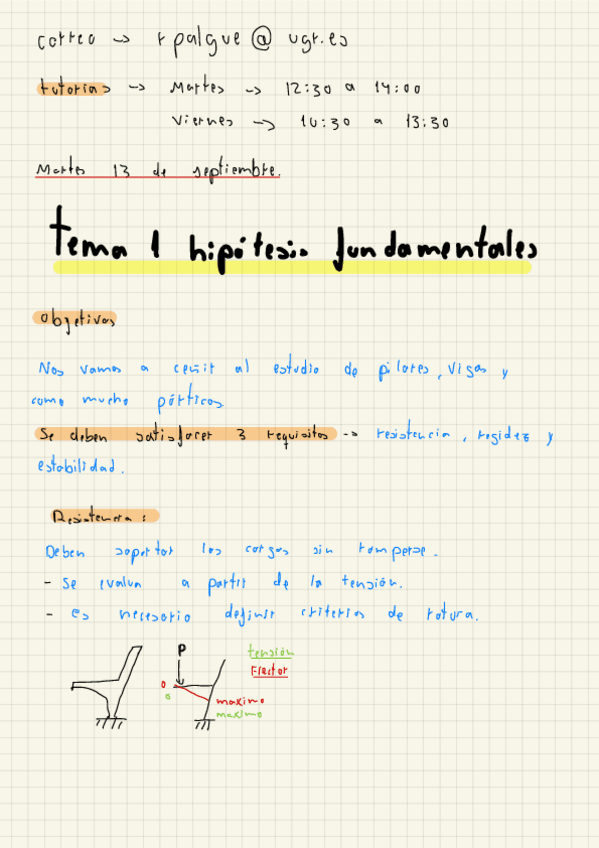 correo → rpalgue@ugr.es
tutorias → Martes → 12:30 a 14:00
Viernes → 10:30 a 13:30
Martes 13 de septiembre.
tema 1 hipótesis fundamentales
Objetivos
Nos vamos a ceñir al estudio de pilares, vigas y
como mucho pórticos
Se deben satisfacer 3 requisitos → resistencia, regidez y
estabilidad.
Resistencia:
Deben soportar las cargas sin romperse.
- Se evalua a partir de la tensión.
- es necesario definir criterios de rotura.
P
tensión
Flector
0
0
maximo
maximo